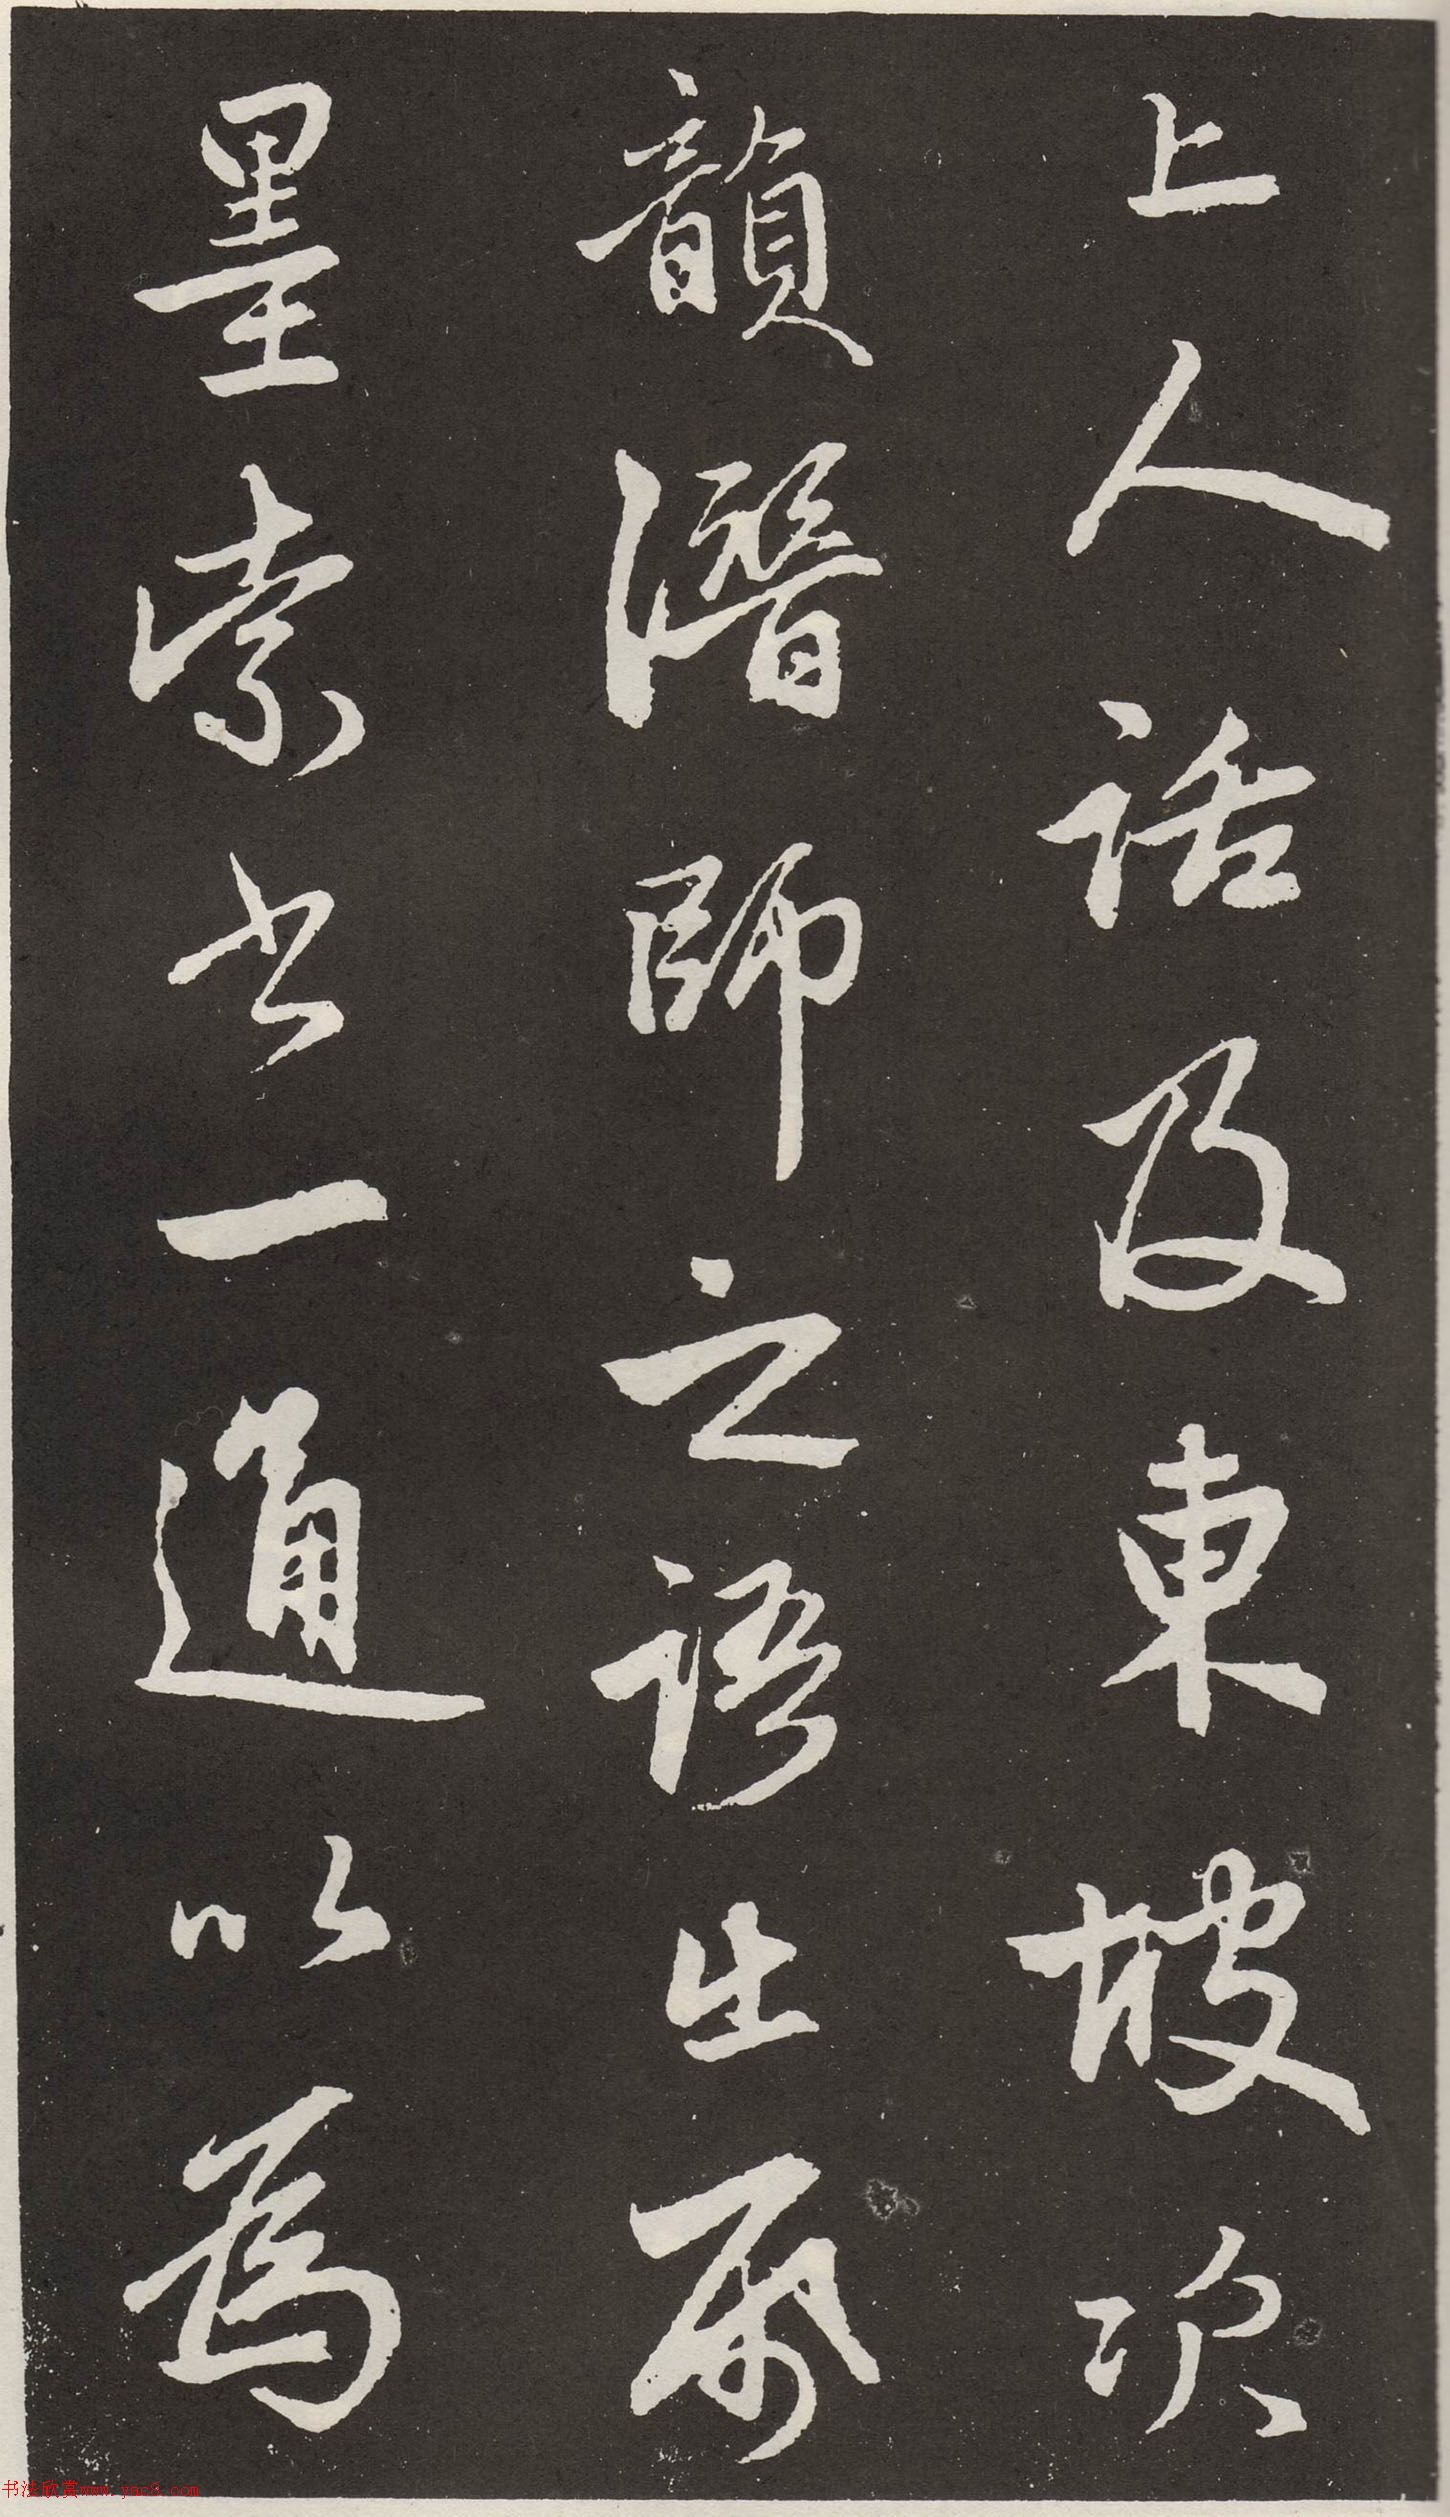 上人話及東坡次
韻潛師之語出帋
墨索书一通以為
书法欣赏www.yac8.com